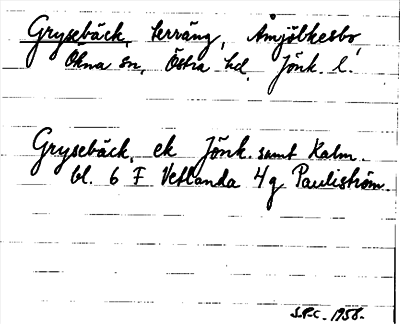 Grysebäck, terräng, Åmjölkesbo,
Ökna sn, Östra hd, Jönk. l.
Grysebäck, ek Jönk. samt Kalm.
bl. 6 F Vetlanda 4g Pauliström.
S.P.C. 1958.